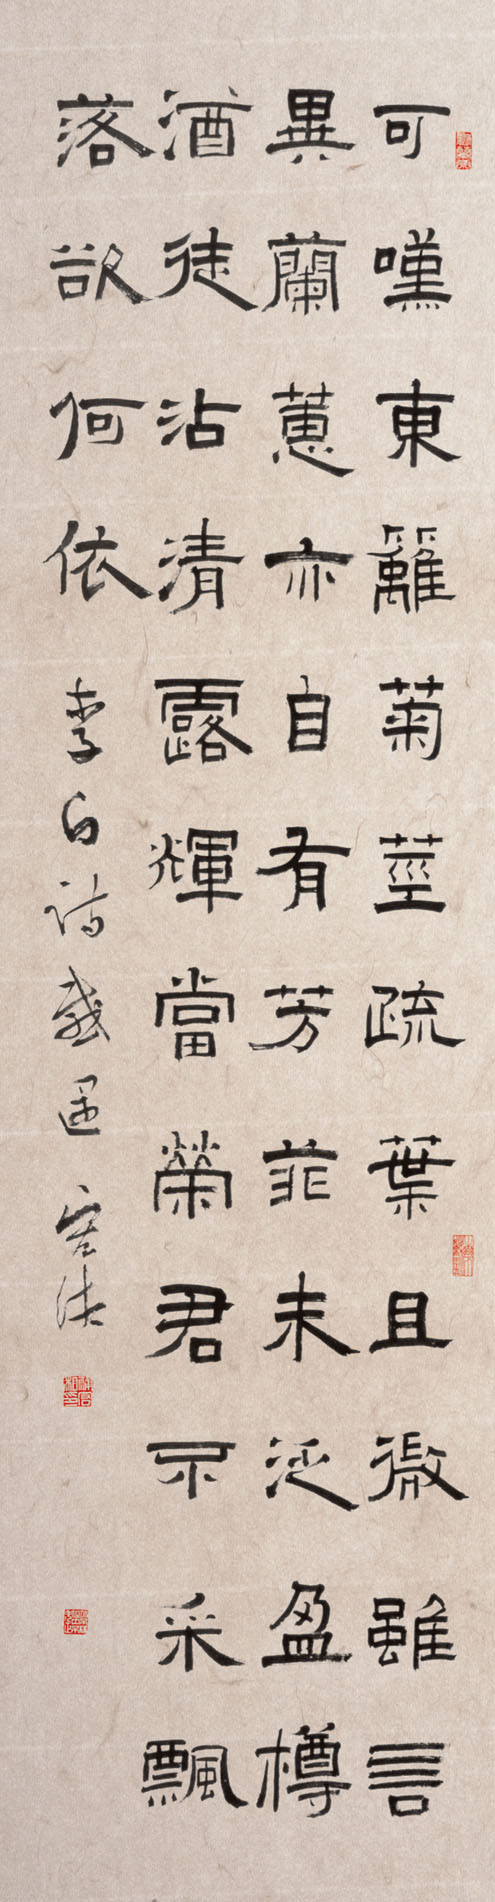 可嘆東籬菊莖疏葉且微雖言
異蘭蕙亦自有芳菲未泛盈樽
酒徒沾清露輝當榮君不采飄
落欲何依 李白詩感遇